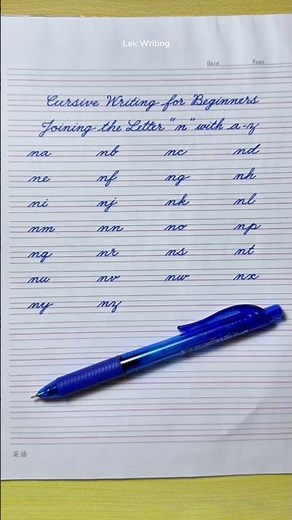 Lek Writing
Date Page
Cursive Writing for Beginners
Joining the Letter "n" with a-z
na nb nc nd
ne nf ng nh
ni nj nk nl
nm nn no np
nq nr ns nt
nu nv nw nx
ny nz
英语